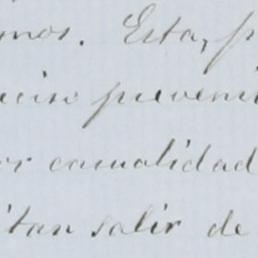 mos. Esta, p
eciso preveni
or casualidad
itan salir de